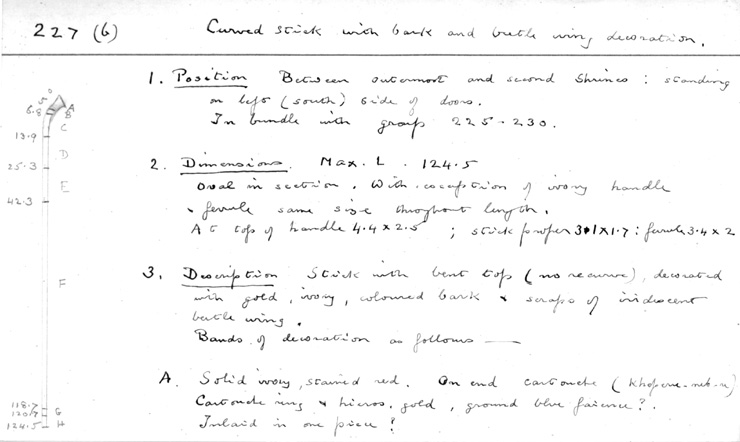 227 (6) Curved stick with bark and beetle wing decoration.
1. Position Between outermost and second shrines : standing
on left (south) side of doors.
In bundle with group 225 - 230.
2. Dimensions. Max. L. 124.5
Oval in section. With exception of ivory handle
& ferrule same size throughout length.
At top of handle 4.4 x 2.5 ; stick proper 3.1 x 1.7 : ferrule 3.4 x 2
3. Description Stick with bent top (no recurve), decorated
with gold, ivory, coloured bark & scraps of iridescent
beetle wing.
Bands of decoration as follows —
A. Solid ivory, stained red. On end cartouche (Kheperu-neb-re)
Cartouche ring & hieros. gold, ground blue faience?.
Inlaid in one piece?
0
5 A
6.8 B
C
13.9
D
25.3
E
42.3
F
118.7
120.7 G
124.5 H